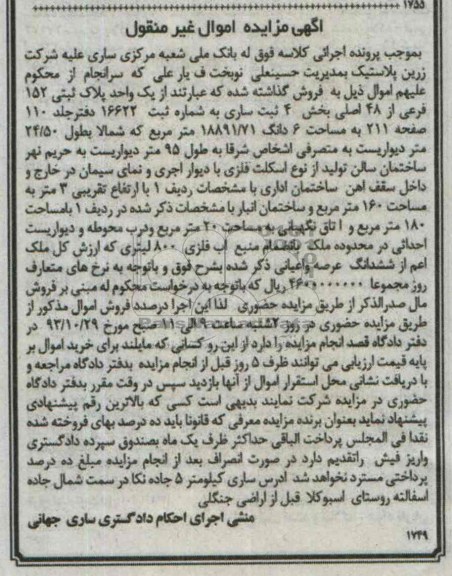 ۱۷۵۵
آگهی مزایده اموال غیر منقول
بموجب پرونده اجرائی کلاسه فوق له بانک ملی شعبه مرکزی ساری علیه شرکت
زرین پلاستیک بمدیریت حسینعلی نوبخت ف یار علی که سرانجام از محکوم
علیهم اموال ذیل به فروش گذاشته شده که عبارتند از یک واحد پلاک ثبتی ۱۵۲
فرعی از ۴۸ اصلی بخش ۴ ثبت ساری به شماره ثبت ۱۶۶۲۲ دفترجلد ۱۱۰
صفحه ۲۱۱ به مساحت ۶ دانگ ۱۸۸۹۱/۷۱ متر مربع که شمالا بطول ۲۴/۵۰
متر دیواریست به متصرفی اشخاص شرقا به طول ۹۵ متر دیواریست به حریم نهر
ساختمان سالن تولید از نوع اسکلت فلزی با دیوار اجری و نمای سیمان در خارج و
داخل سقف اهن ساختمان اداری با مشخصات ردیف ۱ با ارتفاع تقریبی ۳ متر به
مساحت ۱۶۰ متر مربع و ساختمان انبار با مشخصات ذکر شده در ردیف ۱ بامساحت
۱۸۰ متر مربع و ا تاق نگهبانی به مساحت ۲۰ متر مربع ودرب محوطه و دیواریست
احداثی در محدوده ملک بانضمام منبع اب فلزی ۸۰۰ لیتری که ارزش کل ملک
اعم از ششدانگ عرصه واعیانی ذکر شده بشرح فوق و باتوجه به نرخ های متعارف
روز مجموعا ریال که باتوجه به درخواست محکوم له مبنی بر فروش
مال صدرالذکر از طریق مزایده حضوری لذا این اجرا درصدد فروش اموال مذکور از
طریق مزایده حضوری در روز ۲شنبه ساعت ۹ الی ۱۱ صبح مورخ ۹۳/۱۰/۲۹ در
دفتر دادگاه قصد انجام مزایده را دارد از این رو کسانی که مایلند برای خرید اموال بر
پایه قیمت ارزیابی می توانند ظرف ۵ روز قبل از انجام مزایده بدفتر دادگاه مراجعه و
با دریافت نشانی محل استقرار اموال از آنها بازدید سپس در وقت مقرر بدفتر دادگاه
حضوری در مزایده شرکت نمایند بدیهی است کسی که بالاترین رقم پیشنهادی
پیشنهاد نماید بعنوان برنده مزایده معرفی که قانونا باید ده درصد بهای فروخته شده
نقدا فی المجلس پرداخت الباقی حداکثر ظرف یک ماه بصندوق سپرده دادگستری
واریز فیش راتقدیم دارد در صورت انصراف بعد از انجام مزایده مبلغ ده درصد
پرداختی مسترد نخواهد شد ادرس ساری کیلومتر ۵ جاده نکا در سمت شمال جاده
اسفالته روستای اسبوکلا قبل از اراضی جنگلی
منشی اجرای احکام دادگستری ساری جهانی
۱۷۴۹